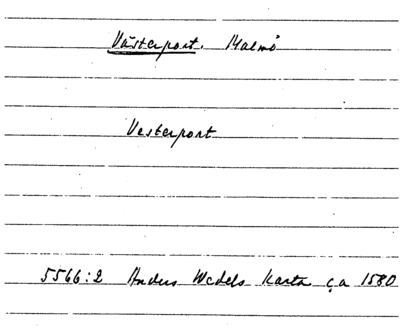 Västerport. Malmö
Vesterport
5566:2 Anders Wedels karta ca 1580